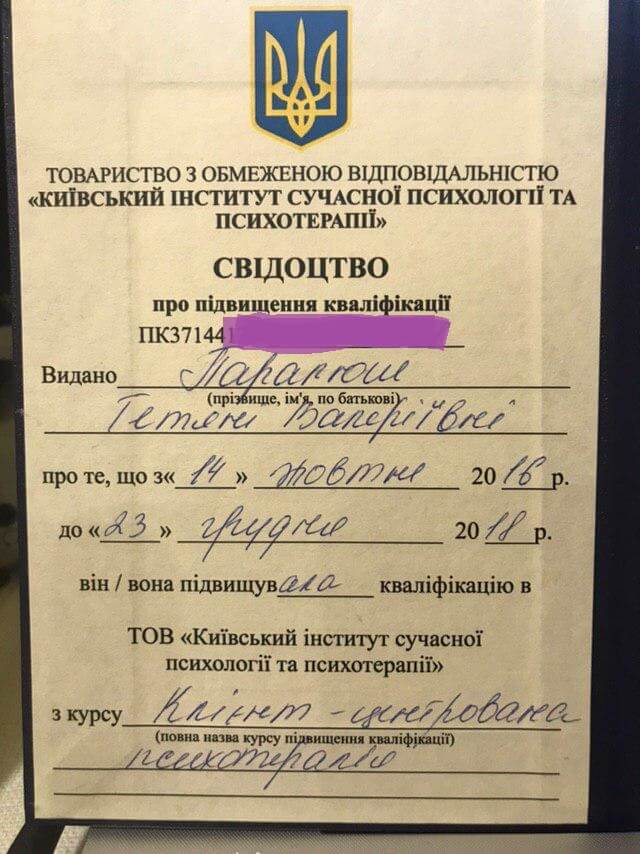 ТОВАРИСТВО З ОБМЕЖЕНОЮ ВІДПОВІДАЛЬНІСТЮ
«КИЇВСЬКИЙ ІНСТИТУТ СУЧАСНОЇ ПСИХОЛОГІЇ ТА
ПСИХОТЕРАПІЇ»
СВІДОЦТВО
про підвищення кваліфікації
ПК371441
Видано
(прізвище, ім'я, по батькові)
Тетяні Валеріївні
про те, що з« 14 » жовтня 20 16 р.
до « 23 » грудня 20 18 р.
він / вона підвищувала кваліфікацію в
ТОВ «Київський інститут сучасної
психології та психотерапії»
з курсу Клієнт - центрована
(повна назва курсу підвищення кваліфікації)
психотерапія